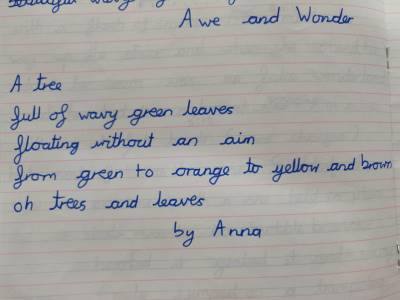 Awe and Wonder
A tree
full of wavy green leaves
floating without an aim
from green to orange to yellow and brown
oh trees and leaves
by Anna